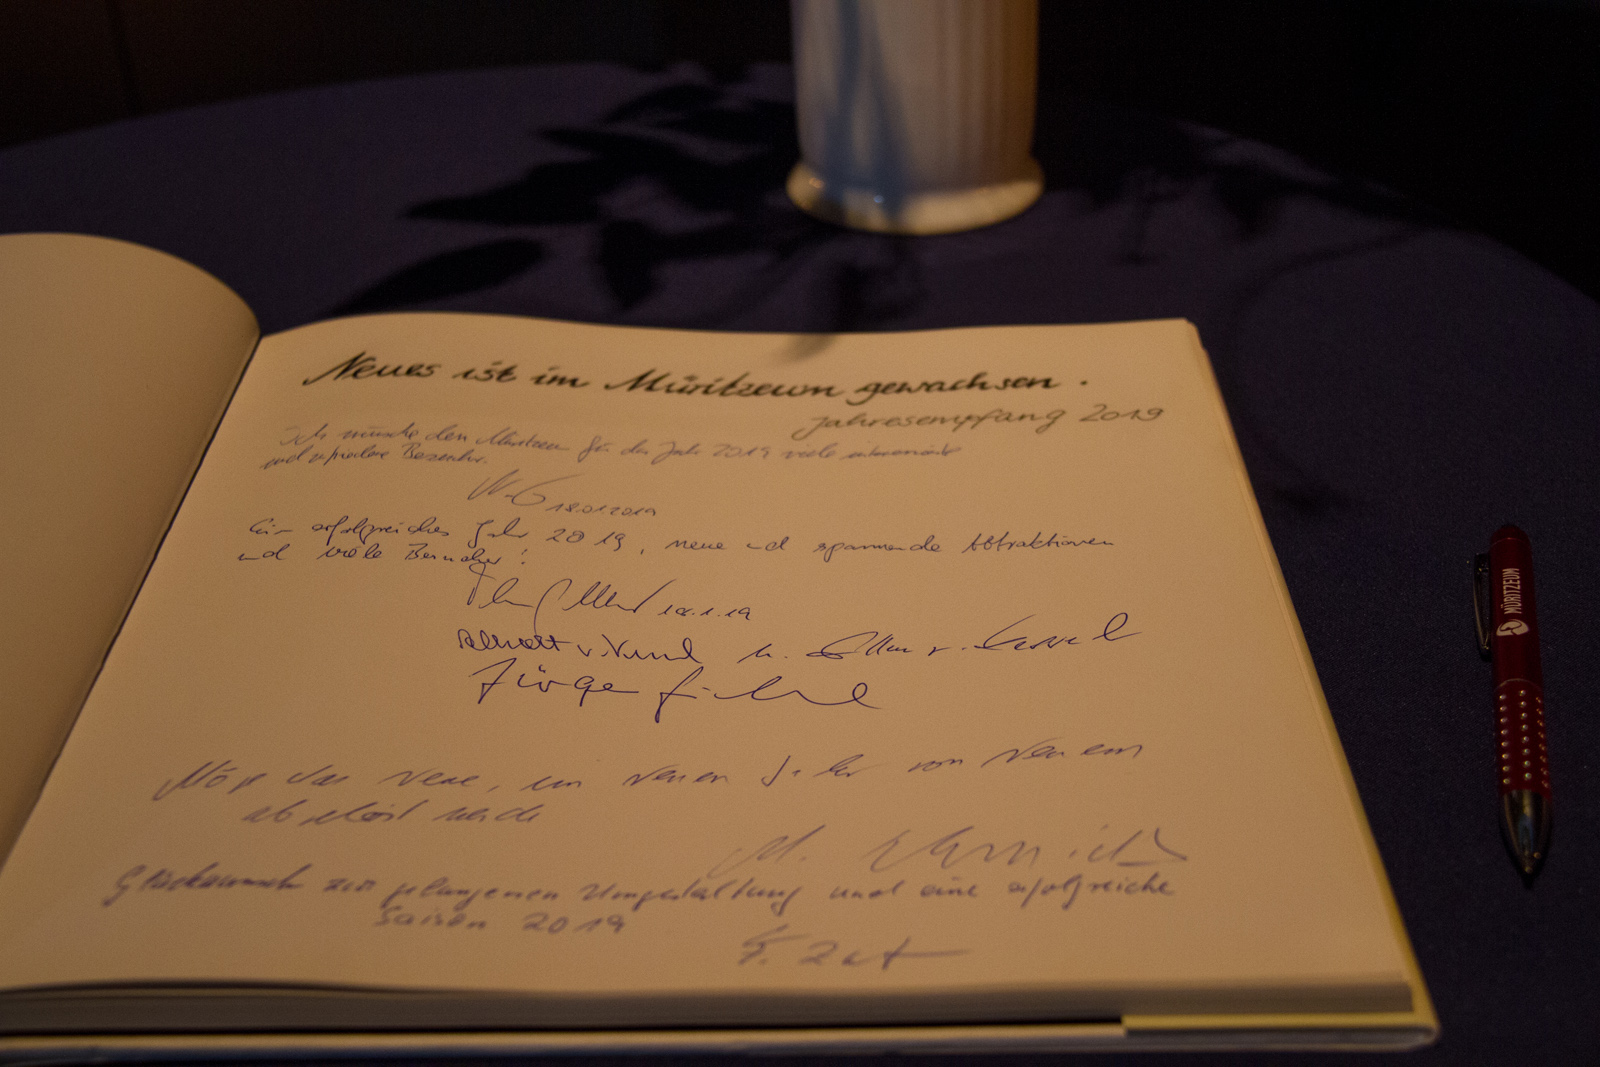 Neues ist im Müritzeum gewachsen.
Jahresempfang 2019
Ich wünsche dem Müritzeum für das Jahr 2019 viele interessante
und zufriedene Besucher.
18.01.2019
Ein erfolgreiches Jahr 2019, neue und spannende Attraktionen
und viele Besucher!
18.1.19
Jürgen
Möge das Neue, im neuen Jahr von Neuem
abgelöst werden
Glückwunsch zur gelungenen Umgestaltung und eine erfolgreiche
Saison 2019
MÜRITZEUM